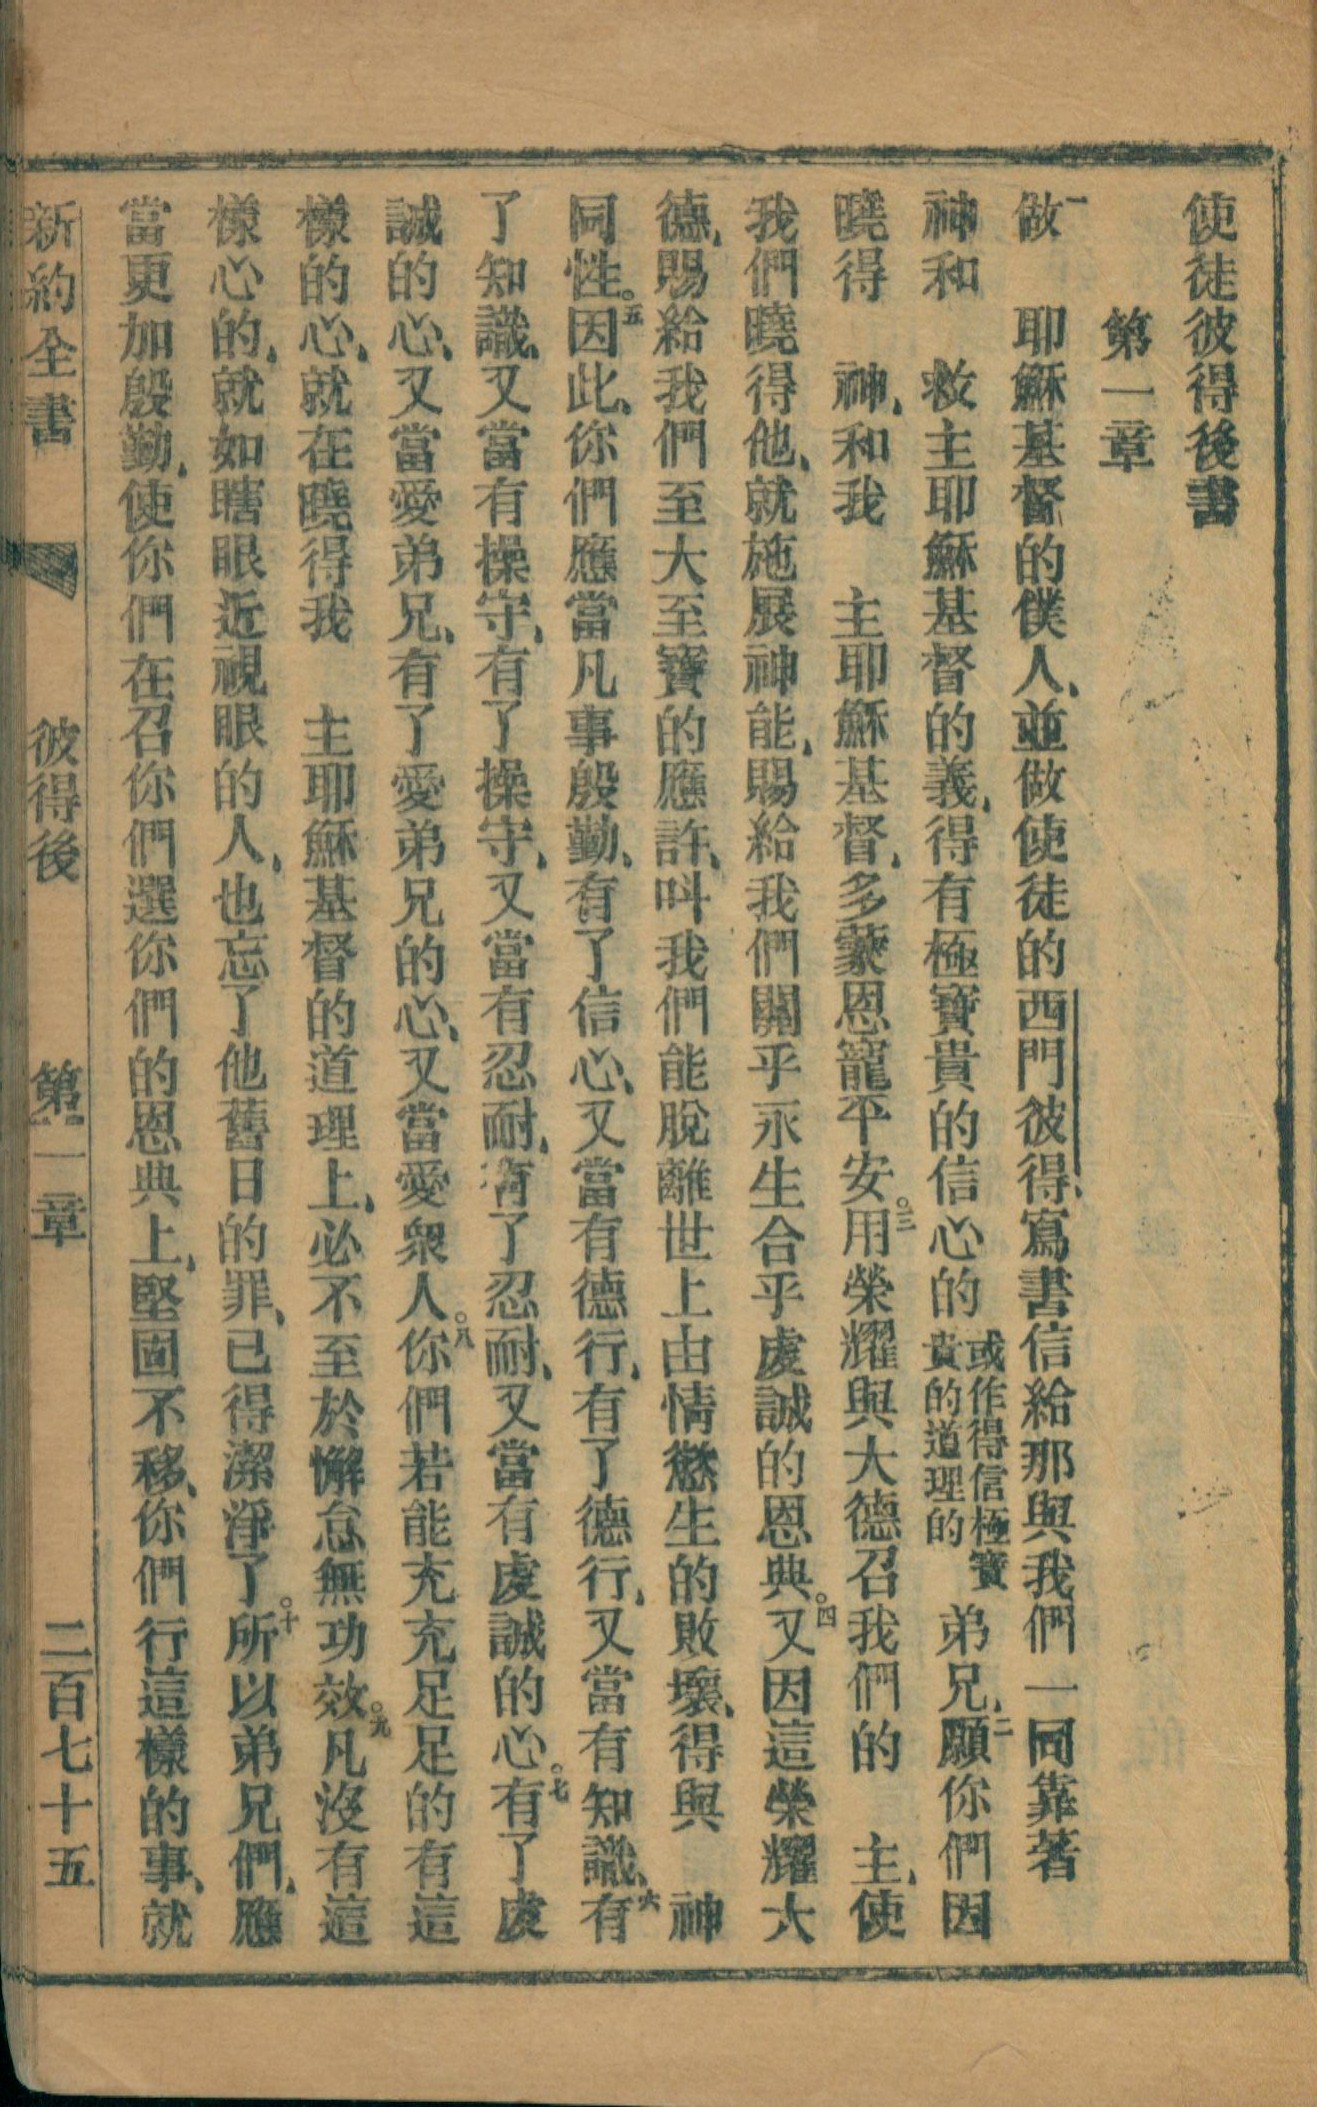 使徒彼得後書
第一章
一做　耶穌基督的僕人、並做使徒的西門彼得、寫書信給那與我們一同靠著
神和　救主耶穌基督的義、得有極寶貴的信心的或作得信極寶貴的道理的弟兄、二願你們因
曉得　神、和我　主耶穌基督、多蒙恩寵平安。三用榮耀與大德召我們的　主、使
我們曉得他、就施展神能、賜給我們關乎永生合乎虔誠的恩典。四又因這榮耀大
德、賜給我們至大至寶的應許、叫我們能脫離世上由情慾生的敗壞、得與　神
同性。五因此、你們應當凡事殷勤、有了信心、又當有德行、有了德行、又當有知識、六有
了知識、又當有操守、有了操守、又當有忍耐、有了忍耐、又當有虔誠的心。七有了虔
誠的心、又當愛弟兄、有了愛弟兄的心、又當愛衆人。八你們若能充充足足的有這
樣的心、就在曉得我　主耶穌基督的道理上、必不至於懈怠無功效。九凡沒有這
樣心的、就如瞎眼近視眼的人、也忘了他舊日的罪、已得潔淨了。十所以弟兄們、應
當更加殷勤、使你們在召你們選你們的恩典上、堅固不移、你們行這樣的事、就
新約全書　彼得後　第一章　二百七十五